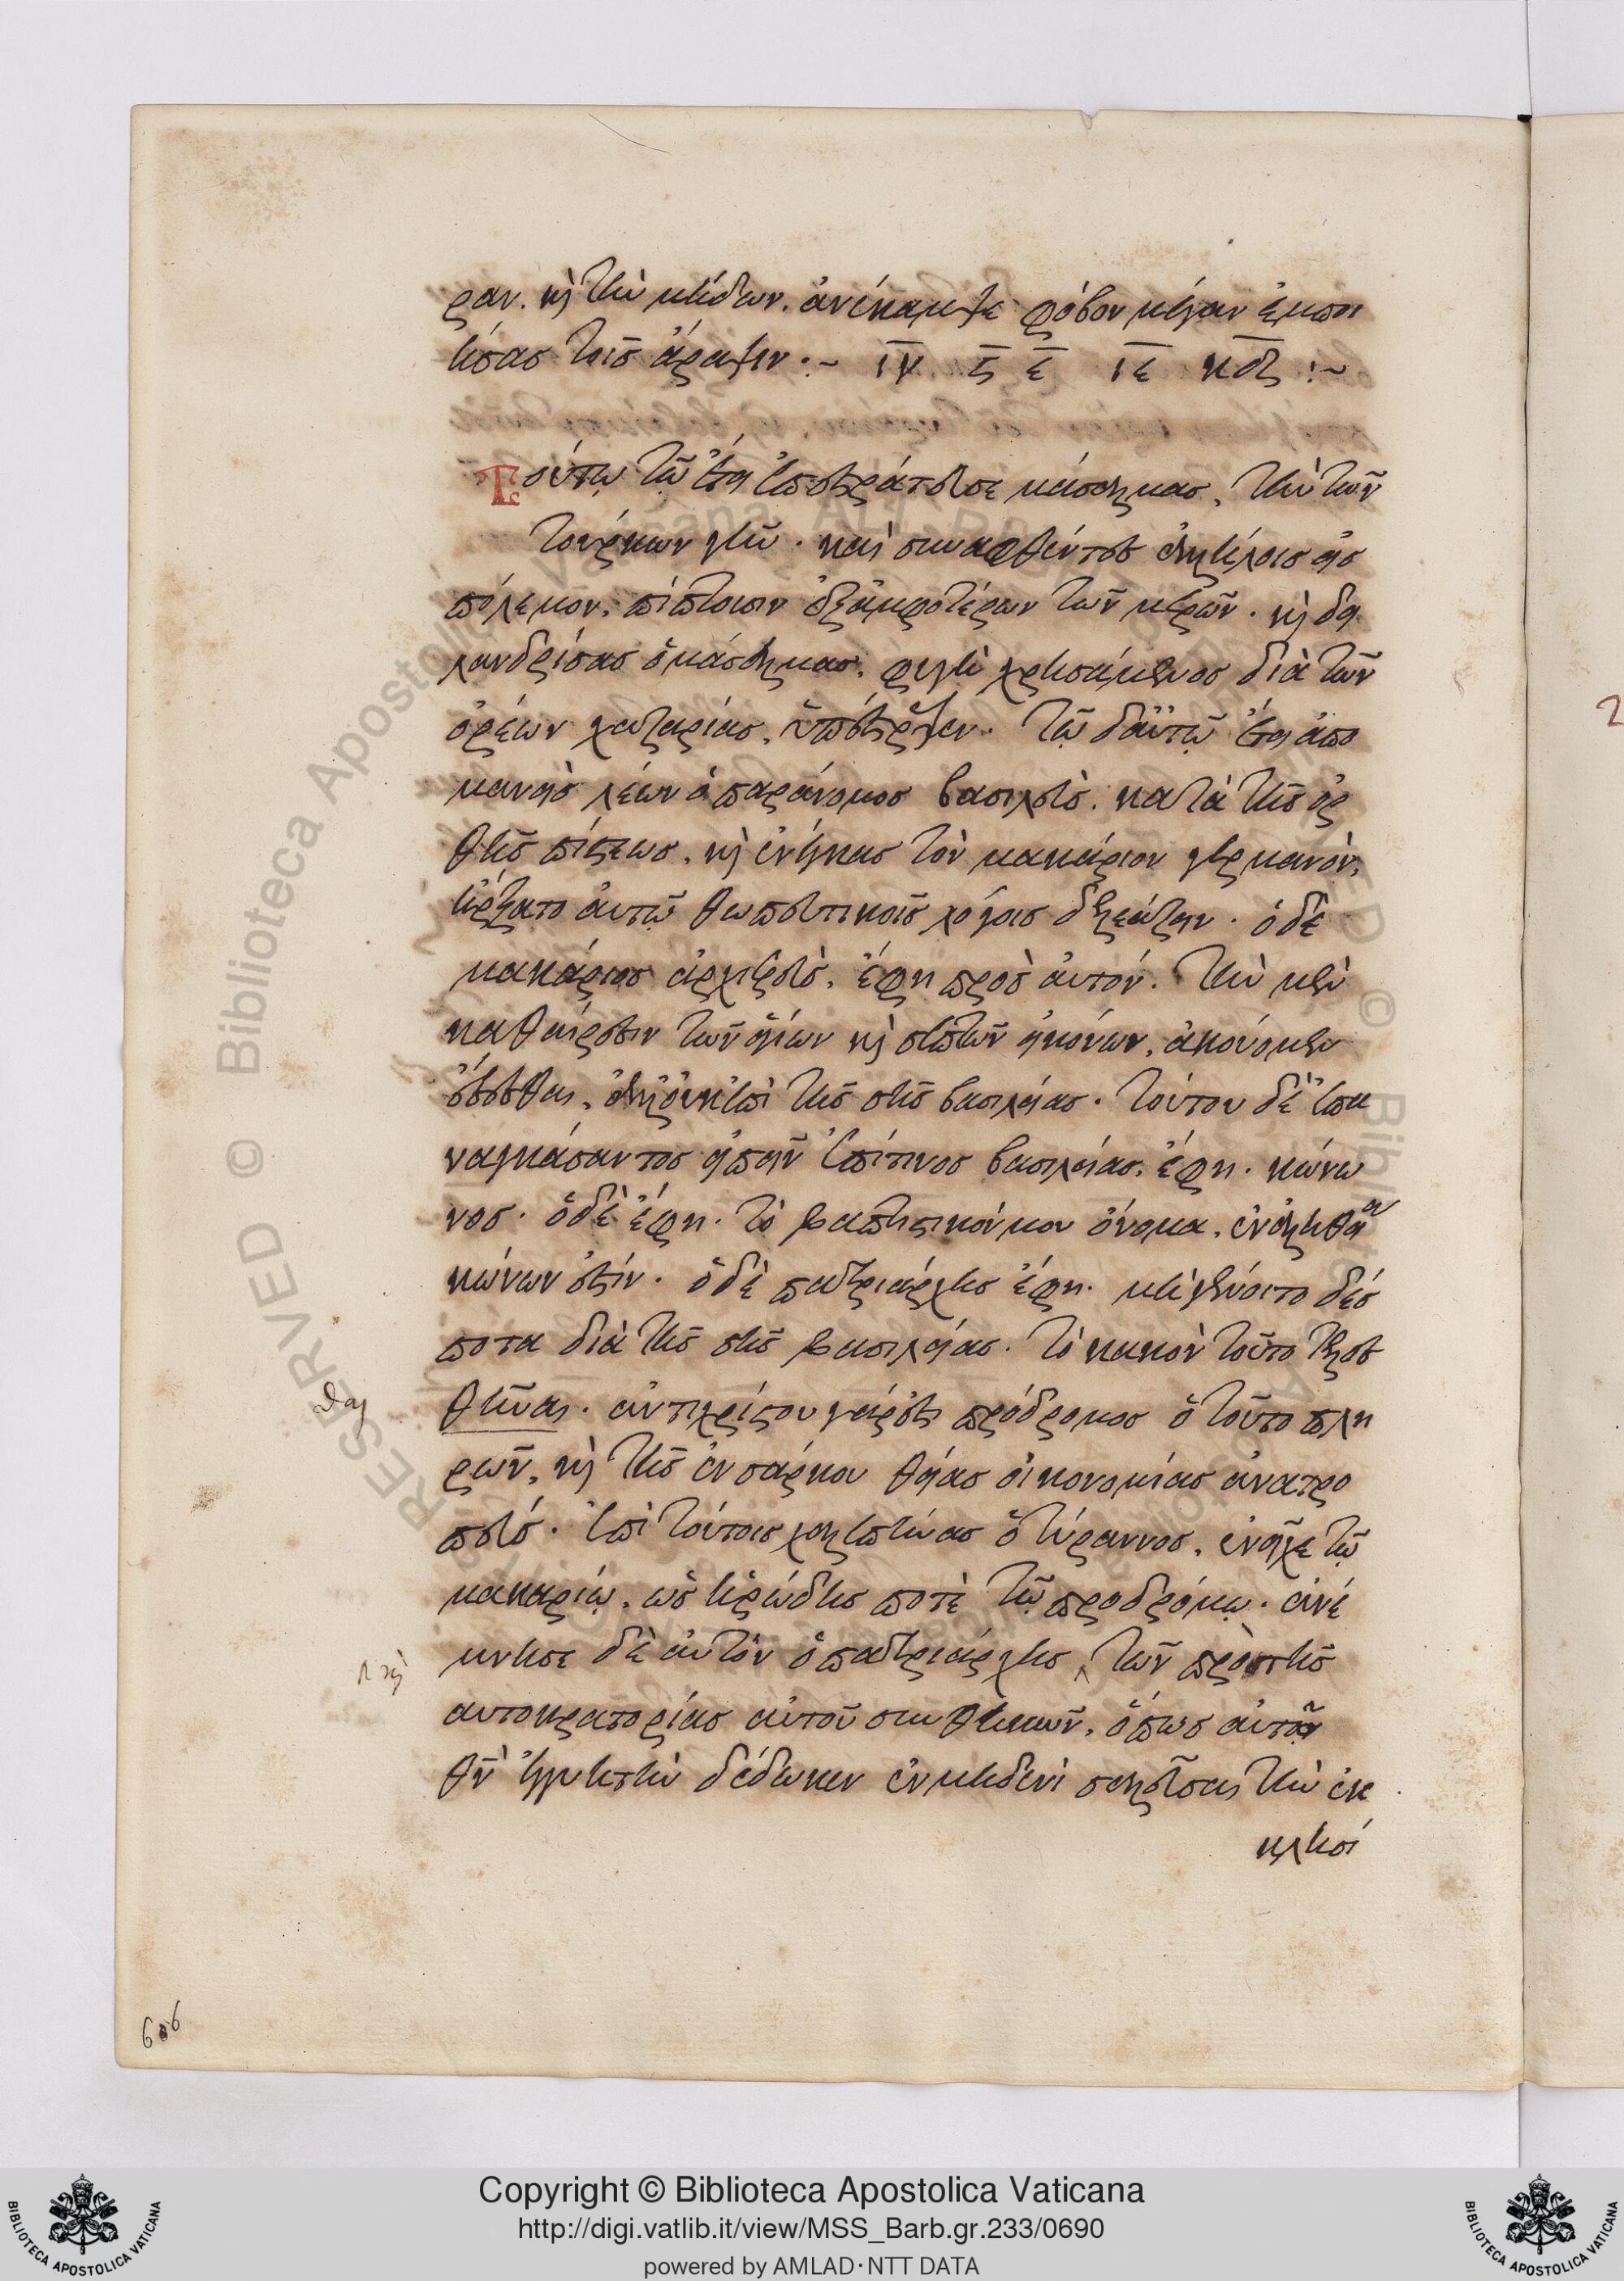 ραν. καὶ τὴν μήδων. ἀνέκαμψε φόβον μέγαν ἐμποι
ήσας τοῖς ἄραψιν :~ ιγ ϛ ε ιε κδ :~
Τούτῳ τῷ ἔτει ἐπεστράτευσε μάσαλμας. τὴν τῶν
τούρκων γῆν. καὶ συναφθέντες ἀλλήλοις εἰς
πόλεμον. πίπτουσιν ἐξ ἀμφοτέρων τῶν μερῶν. καὶ δει
λανδρίσας ὁ μάσαλμας. φυγῇ χρησάμενος διὰ τῶν
ὀρέων χαζαρίας. ὑπέστρεψεν. τῷ δ' αὐτῷ ἔτει ἀπο
μανεὶς λέων ὁ παράνομος βασιλεὺς. κατὰ τῆς ὀρ
θῆς πίστεως. καὶ ἐνέγκας τὸν μακάριον γερμανόν.
ἤρξατο αὐτῷ θωπευτικοῖς λόγοις δελεάζειν. ὁ δὲ
μακάριος ἀρχιερεὺς. ἔφη πρὸς αὐτόν. τὴν μὲν
καθαίρεσιν τῶν ἁγίων καὶ σεπτῶν εἰκόνων. ἀκούομεν
ἔσεσθαι. ἀλλ' οὐκ ἐπὶ τῆς σῆς βασιλείας. τούτου δὲ ἐπα
ναγκάσαντος εἰπεῖν ἐπὶ τίνος βασιλείας. ἔφη. κώνω
νος. ὁ δὲ ἔφη. τὸ βαπτιστικόν μου ὄνομα. ἐν ἀληθείᾳ
κώνων ἐστίν. ὁ δὲ πατριάρχης ἔφη. μὴ γένοιτο δέσ
ποτα διὰ τῆς σῆς βασιλείας. τὸ κακὸν τοῦτο τελεσ
θῆναι. ἀντιχρίστου γάρ ἐστι πρόδρομος ὁ τοῦτο πλη
ρῶν. καὶ τῆς ἐνσάρκου θείας οἰκονομίας ἀνατρο
πεύς. ἐπὶ τούτοις χαλεπήνας ὁ τύραννος. ἐνεῖχε τῷ
μακαρίῳ. ὡς ἡρώδης ποτὲ τῷ προδρόμῳ. ἀνέ
μνησε δὲ αὐτὸν ὁ πατριάρχης τῶν πρὸ τῆς
αυτοκρατορίας αὐτοῦ συνθηκῶν. ὅπως αὐτῷ
θν ἐγγυητὴν δέδωκεν ἐν μηδενὶ σαλεῦσαι τὴν ἐκ
κλησί
606
Copyright © Biblioteca Apostolica Vaticana
http://digi.vatlib.it/view/MSS_Barb.gr.233/0690
powered by AMLAD·NTT DATA